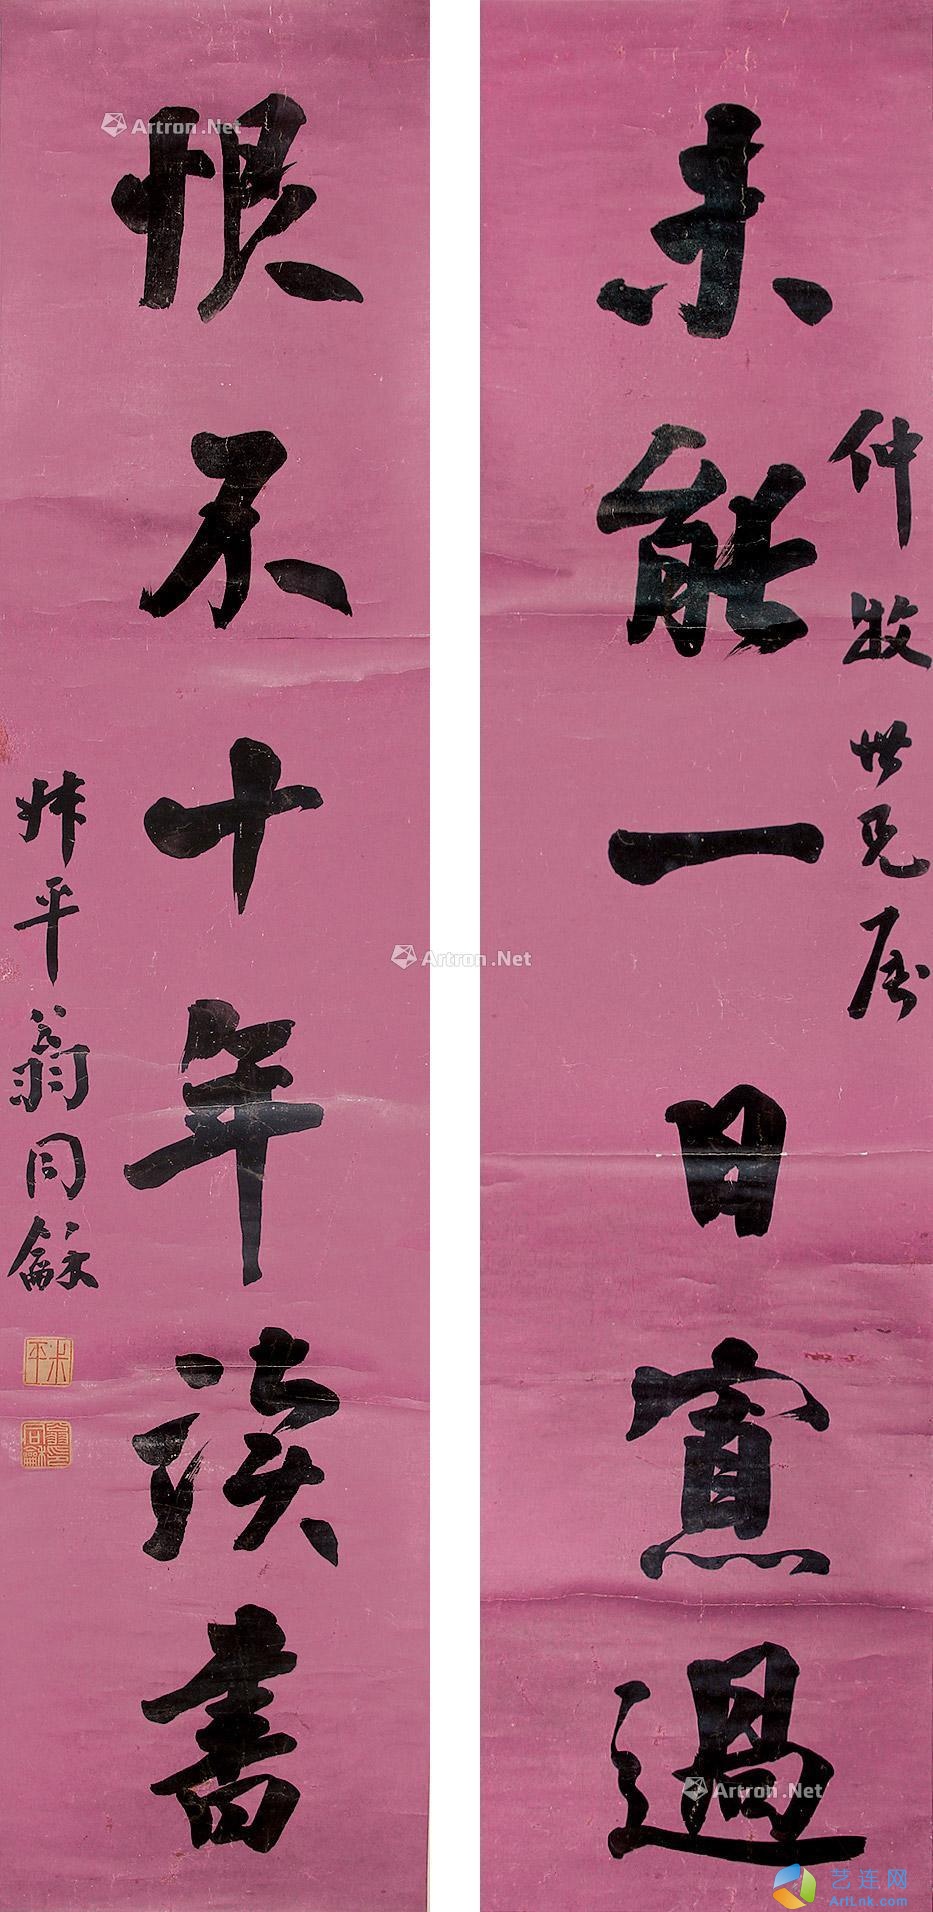 未能一日寡過
仲牧世兄屬
恨不十年讀書
叔平翁同龢
叔平
翁同龢印
Artron.Net
Artron.Net
Artron.Net
艺连网
ArtLnk.com